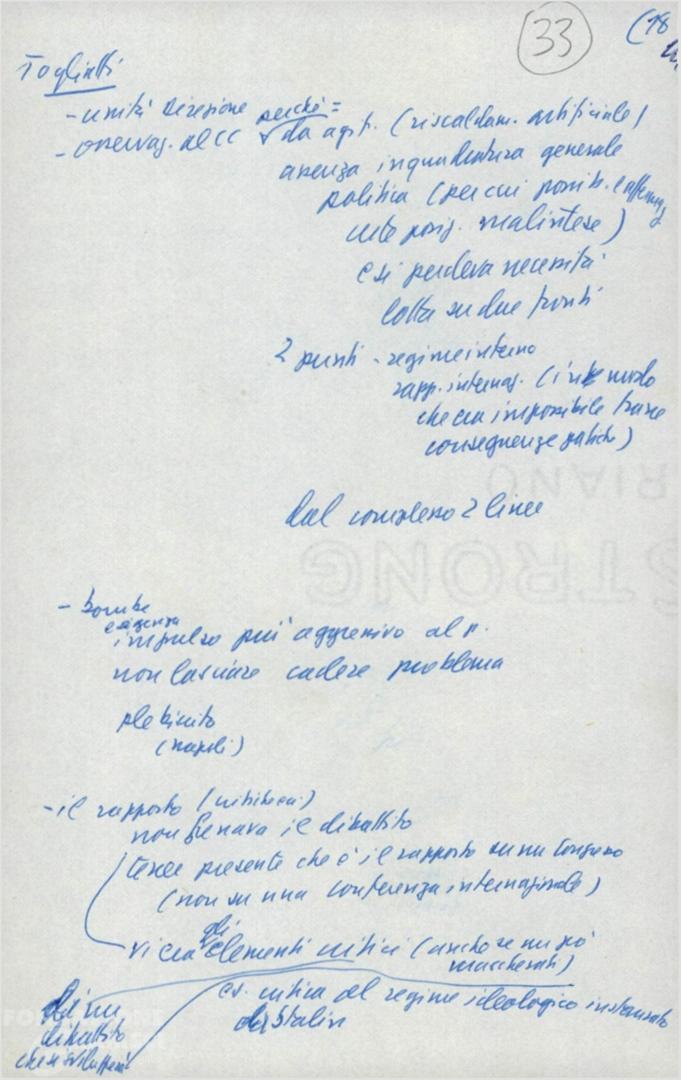 33
(18
Togliatti
- unità direzione perché =
- osservaz. al CC da agit. (riscaldam. artificiale)
assenza inquadratura generale
politica (per cui possib.
certe posiz. malintese)
e si perdeva necessità
lotta su due fronti
2 punti - regime interno
rapp. internaz. (in modo
che era impossibile trarre
conseguenze)
dal complesso 2 linee
- bombe
esigenza
impulso più aggressivo al p.
non lasciare cadere problema
plebiscito
(napoli)
- il rapporto (
non frenava il dibattito
tener presente che è il rapporto su un Congresso
(non su una conferenza internazionale)
vi era gli elementi critici (anche se un po'
mascherati)
es. critica al regime ideologico instaurato
da Stalin
di un
dibattito
che si sviluppa